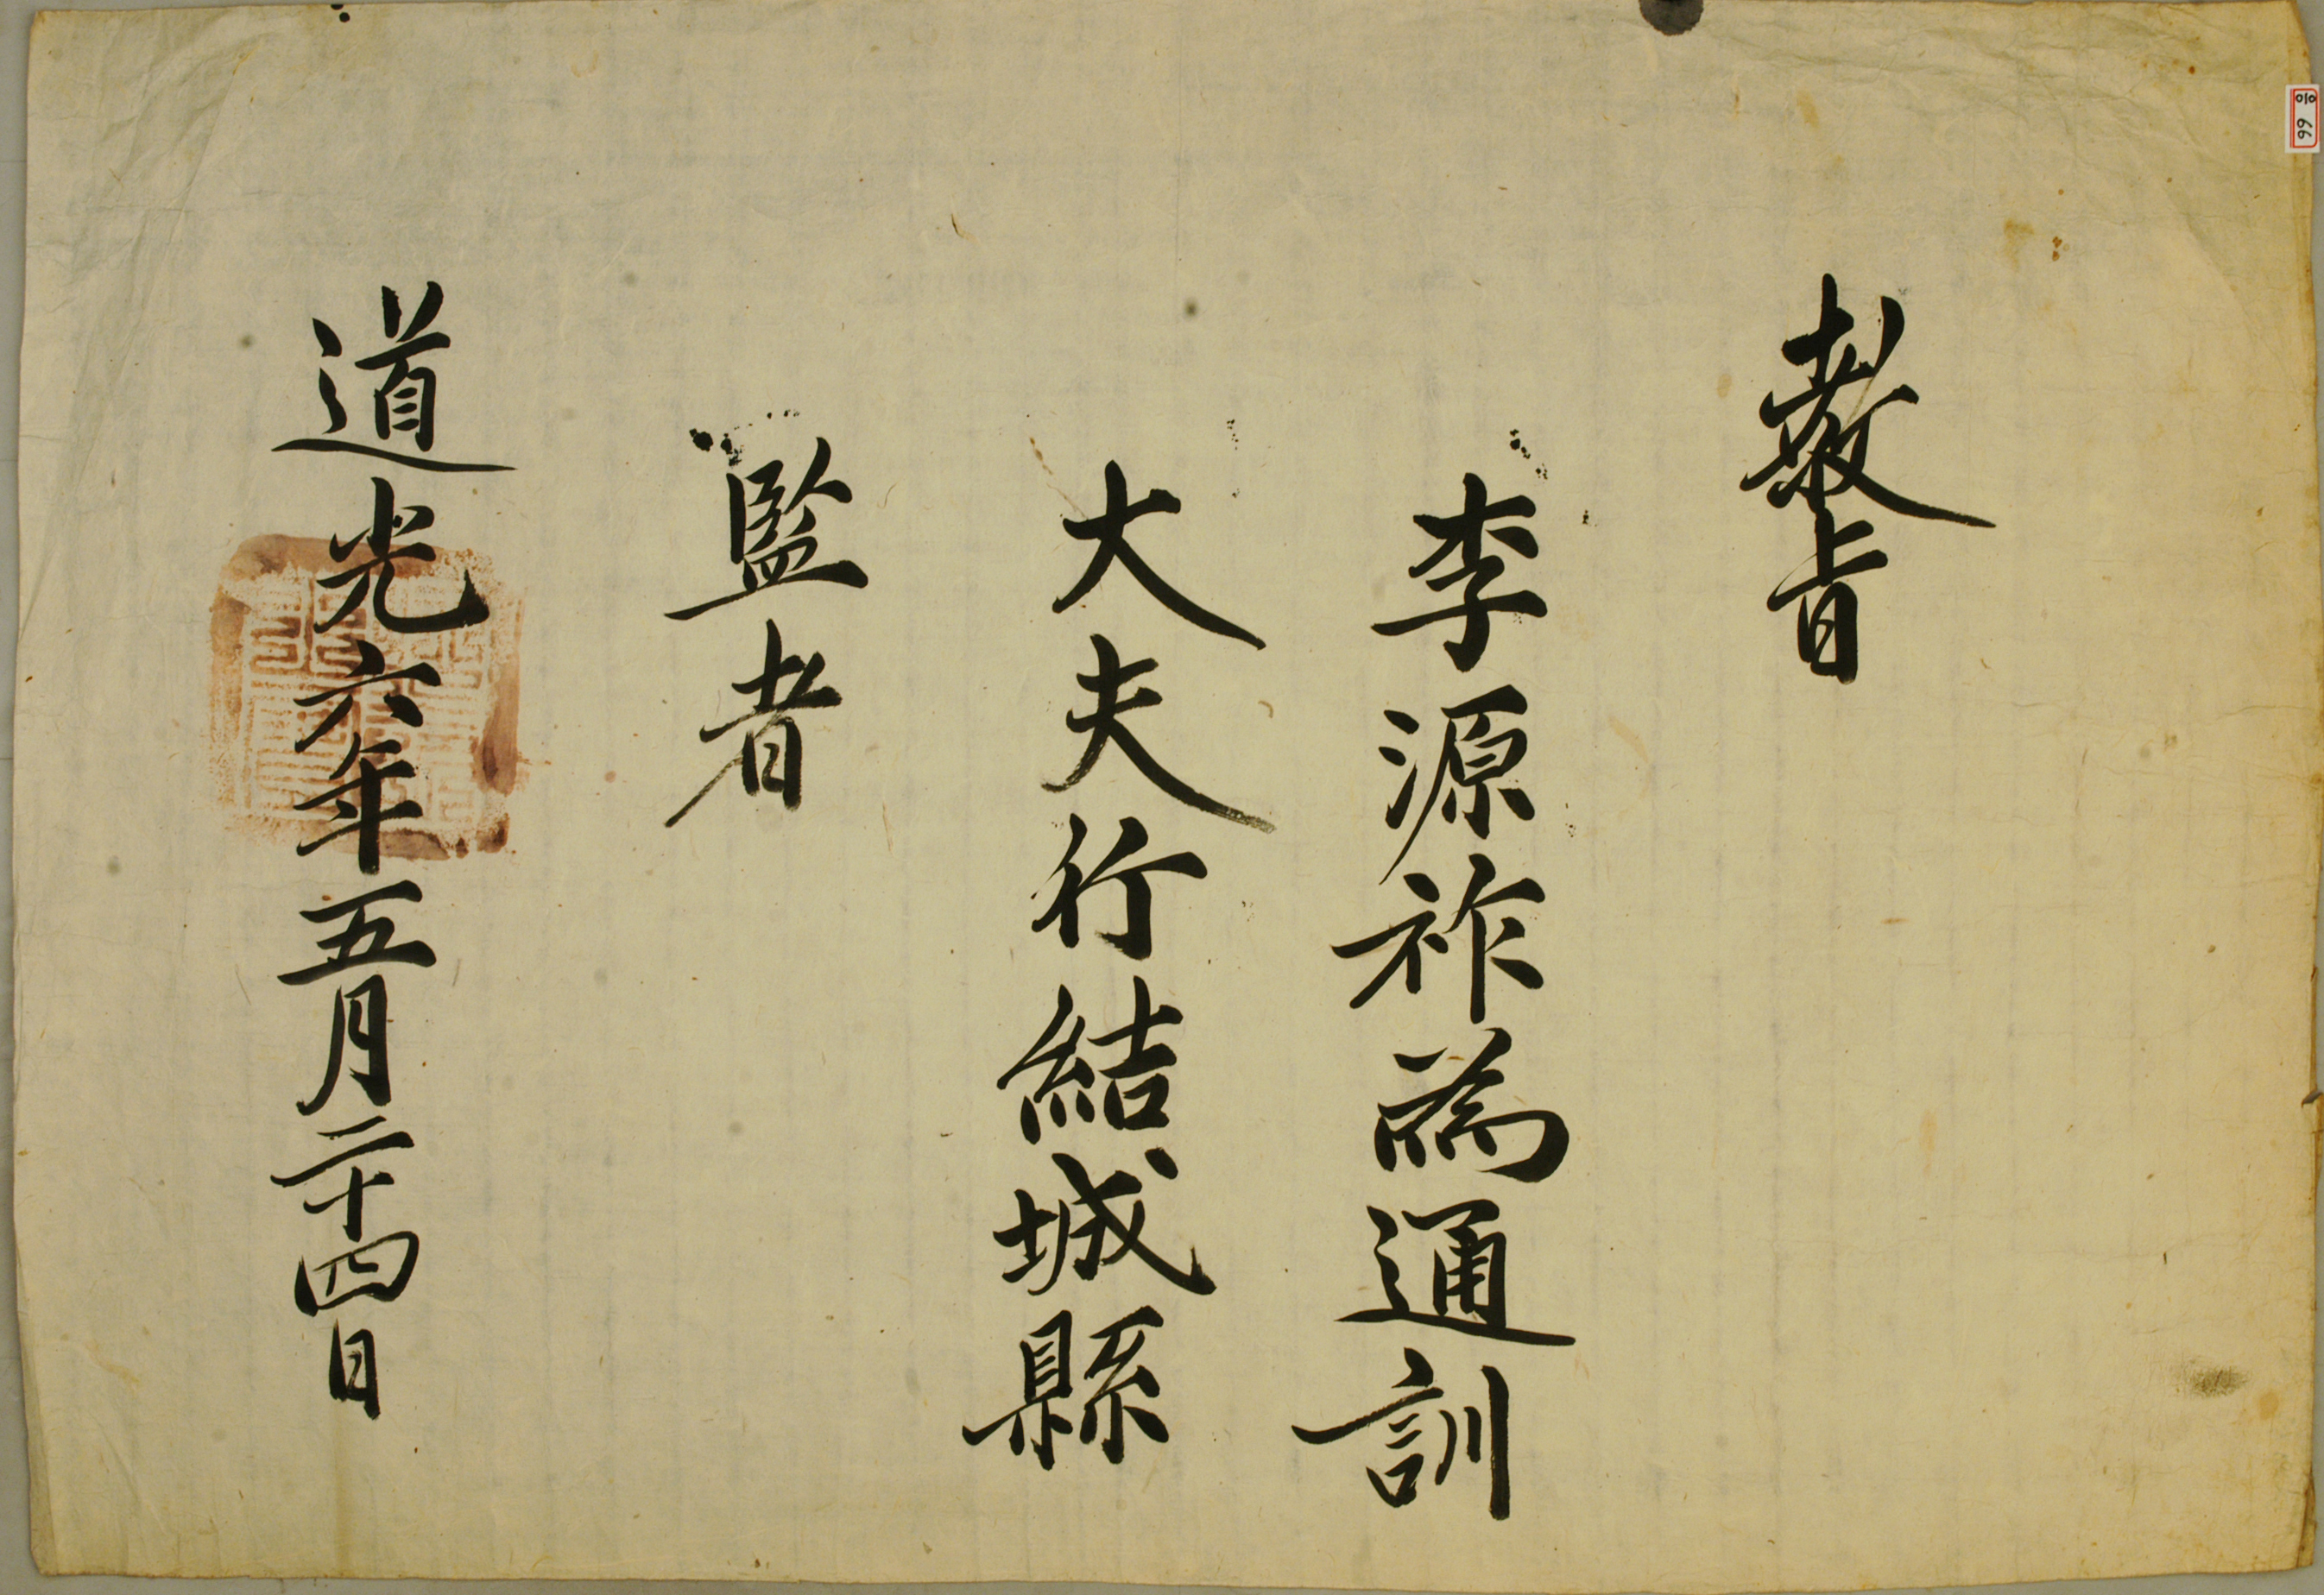 敎旨
李源祚爲通訓
大夫行結城縣
監者
道光六年五月二十四日